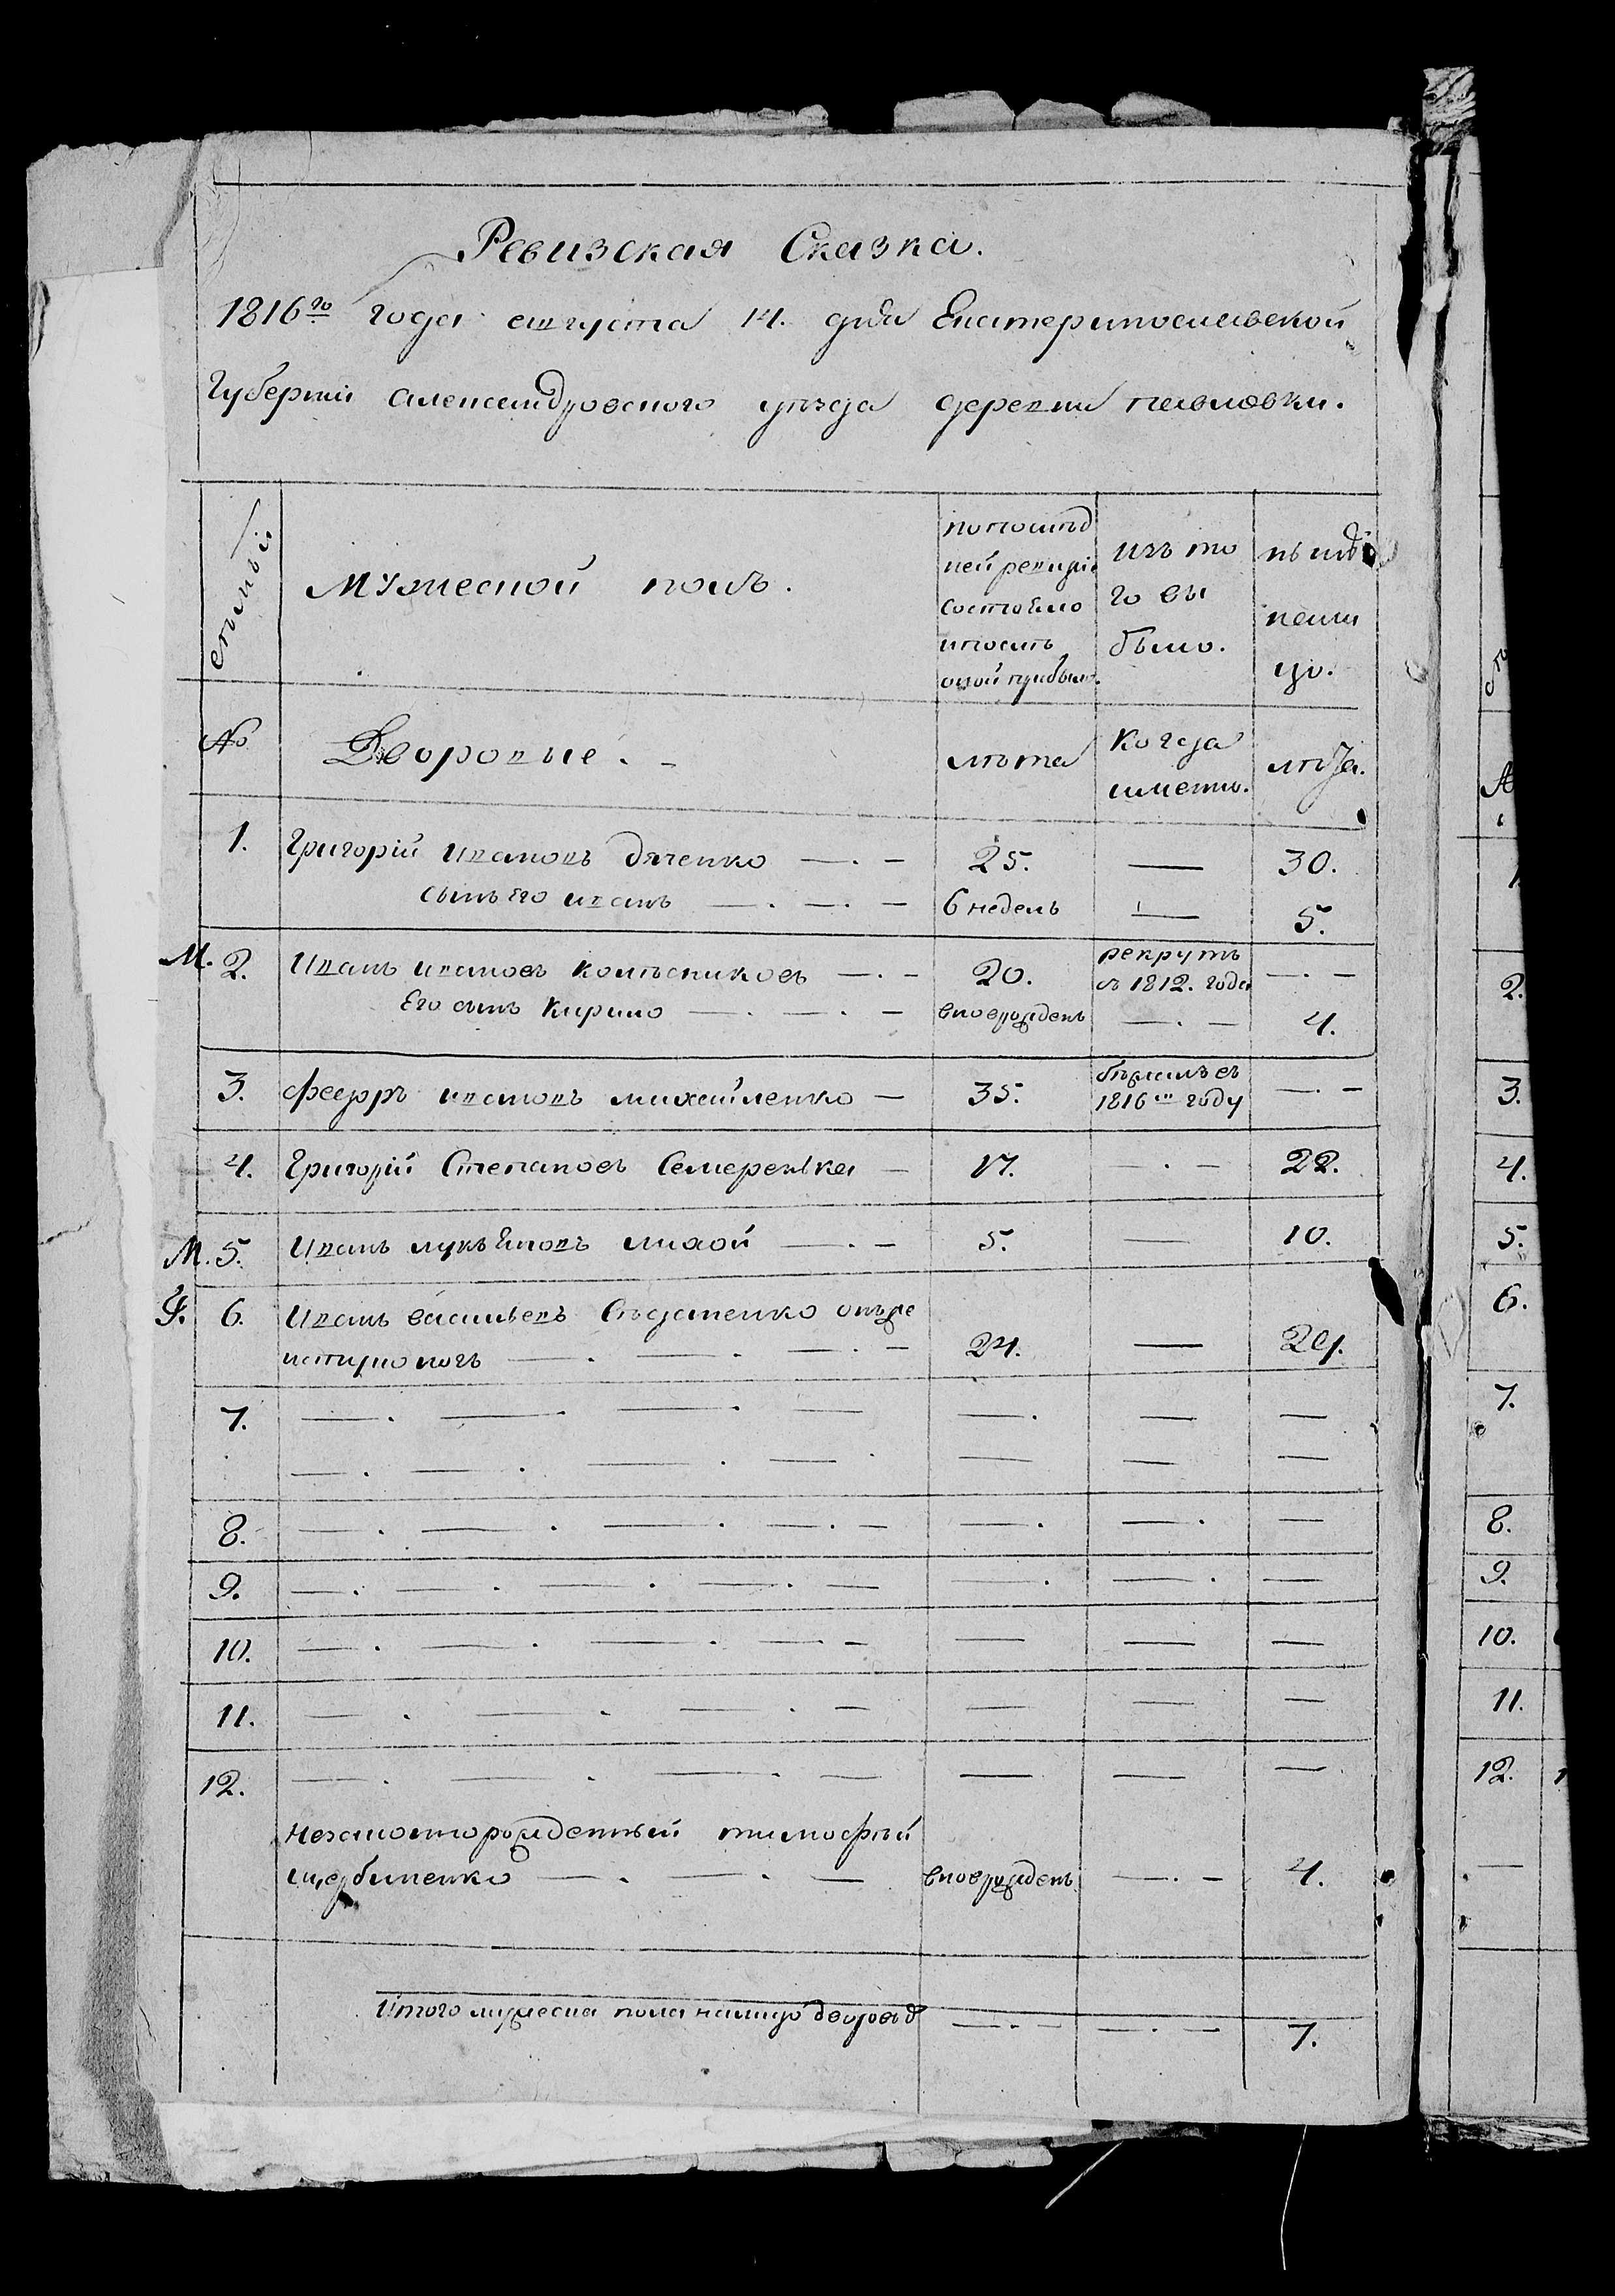 Ревизская Сказка.
1816го года августа 14. дня Екатеринославской
Губернии александровского уезда деревни павловки.
семьи.
Мужеской полъ.
попослед
ней ревизіи
состояло
ипосле
оной прибыло.
изъ то
го вы
было.
ныне
нали
цо.
№
Дворовые.
лѣта
Когда
именно.
лѣта.
1. Григорій Ивановъ дяченко — . — 25. — 30.
сынъ Его иванъ — . — . — 6 недель — 5.
М. 2. Иванъ ивановъ колѣсниковъ — . — 20. рекрутъ
съ 1812. года — . —
Его сынъ Кирило — . — . — вноврожденъ — . — 4.
3. федоръ ивановъ михайленко — 35. бѣжалъ въ
1816м году — . —
4. Григорій Степановъ Семеренька — 17. — . — 22.
М. 5. Иванъ лукьяновъ лихой — . — 5. — 10.
6. Иванъ васильевъ
24. — 29.
7.
8.
9.
10.
11.
12.
незаконнорожденный тимофей
щербиненко — . — . — вноврожденъ — . — 4.
Итого мужеска пола налицо дворов — . — — . — 7.
2.
3.
4.
5.
6.
7.
8.
9.
10.
11.
12.